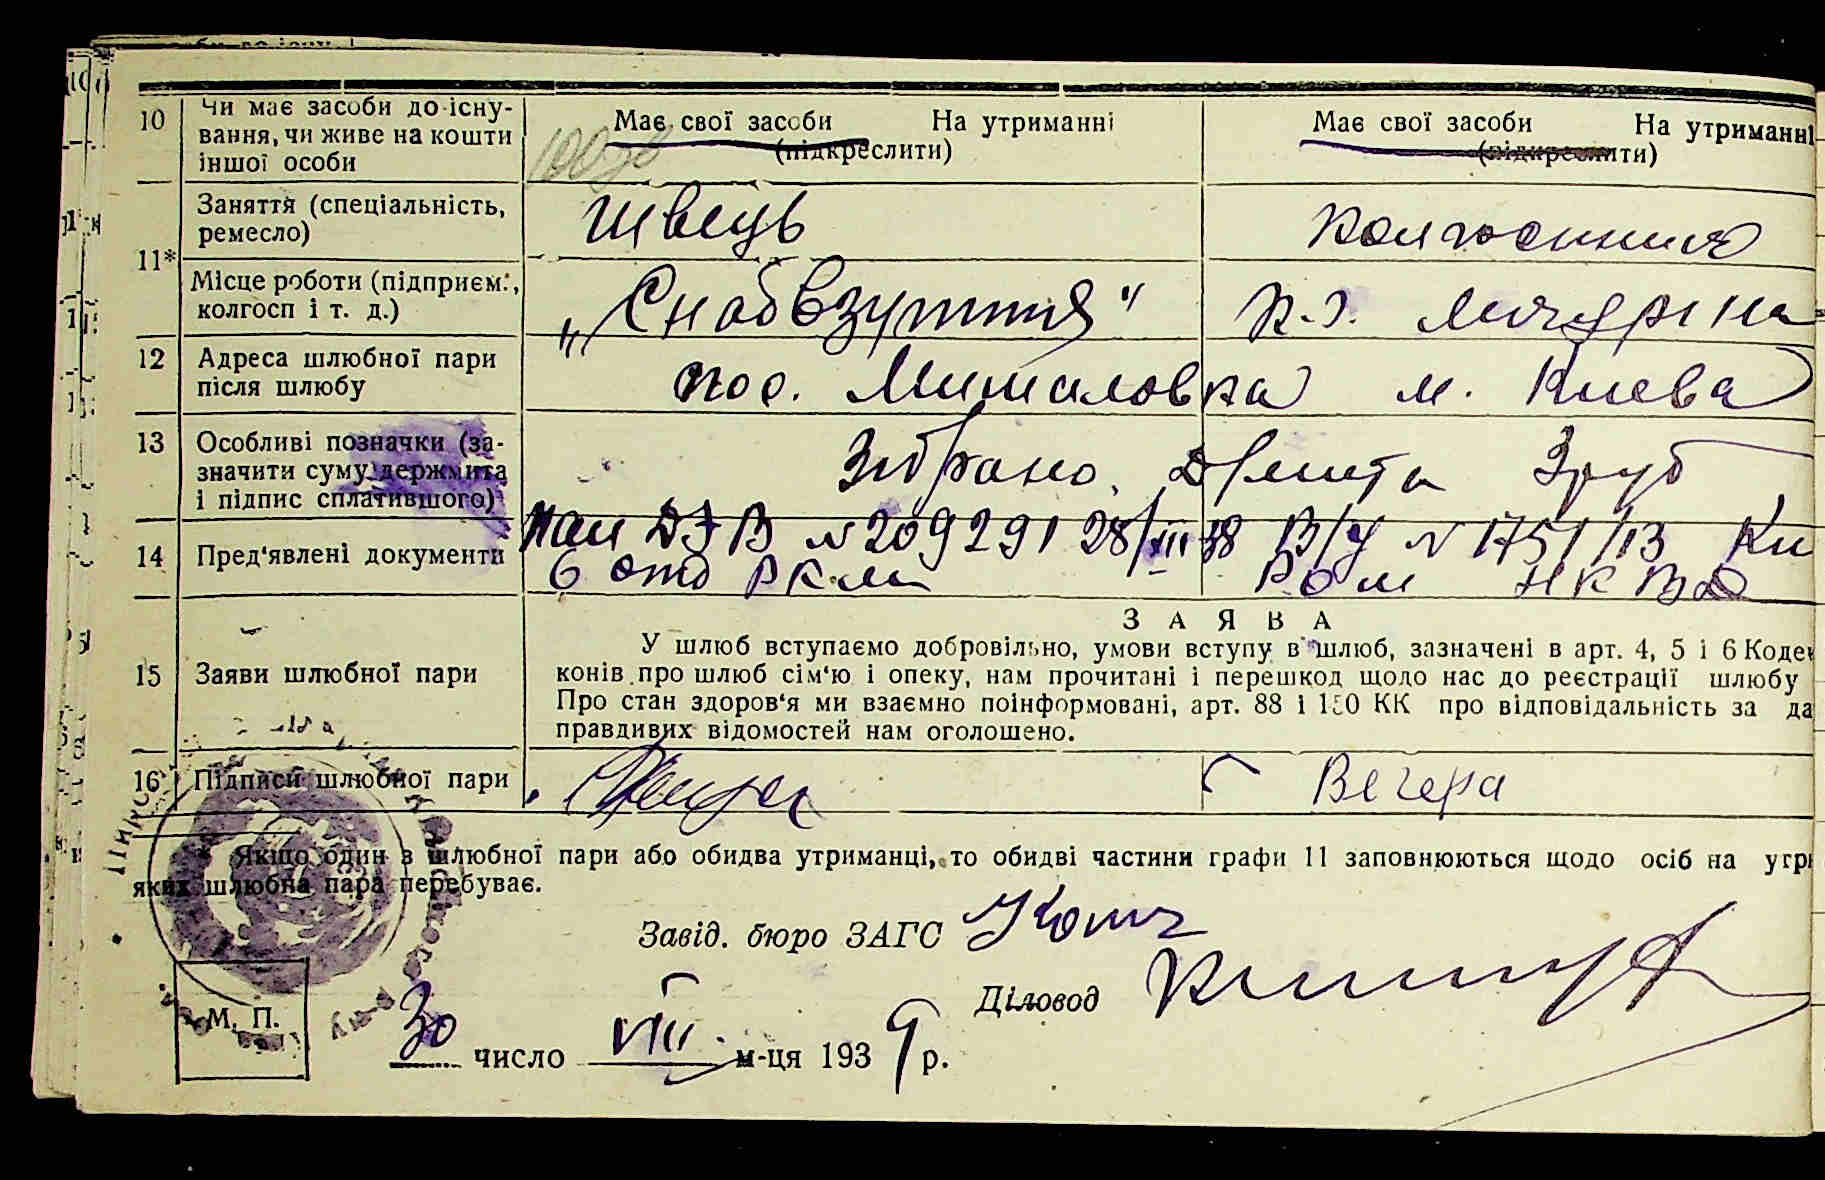 10 Чи має засоби до існу-
вання, чи живе на кошти
іншої особи
Має свої засоби На утриманні
(підкреслити)
Має свої засоби На утриманні
(підкреслити)
11*
Заняття (спеціальність,
ремесло)
Швець
Колгоспниця
Місце роботи (підприєм.,
колгосп і т. д.)
„Снабвзуття"
К.г. Мичуріна
12 Адреса шлюбної пари
після шлюбу
пос. Мишаловка м. Києва
13 Особливі позначки (за-
значити суму держмита
і підпис сплатившого)
Зібрано Д/мита 3 руб
14 Пред'явлені документи
№ 209291 28/VIII 38 В/У № 1751/13 Ки
6 отд РКМ РОМ НКВД
З А Я В А
15 Заяви шлюбної пари
У шлюб вступаємо добровільно, умови вступу в шлюб, зазначені в арт. 4, 5 і 6 Кодек
конів про шлюб сім'ю і опеку, нам прочитані і перешкод щодо нас до реєстрації шлюбу
Про стан здоров'я ми взаємно поінформовані, арт. 88 і 150 КК про відповідальність за да
правдивих відомостей нам оголошено.
16 Підписи шлюбної пари
Вечера
* Якщо один з шлюбної пари або обидва утриманці, то обидві частини графи 11 заповнюються щодо осіб на утри
яких шлюбна пара перебуває.
Завід. бюро ЗАГС
Діловод
М. П.
30 число VIII м-ця 1939 р.